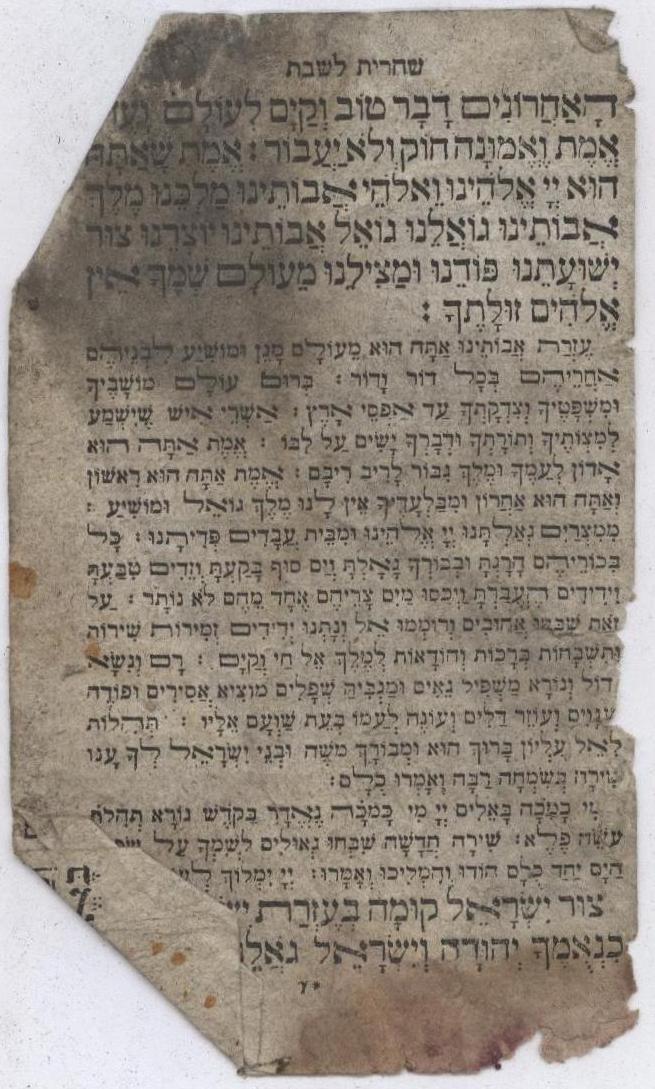 שחרית לשבת
הָאַחֲרוֹנִים דָבָר טוֹב וְקַיָם לְעוֹלָם וָעֶד
אֱמֶת וֶאֱמוּנָה חוֹק וְלֹא יַעֲבוֹר : אֱמֶת שָׁאַתָּה
הוּא יְיָ אֱלֹהֵינוּ וֵאלֹהֵי אֲבוֹתֵינוּ מַלְכֵּנוּ מֶלֶךְ
אֲבוֹתֵינוּ גּוֹאֲלֵנוּ גּוֹאֵל אֲבוֹתֵינוּ יוֹצְרֵנוּ צוּר
יְשׁוּעָתֵנוּ פּוֹדֵנוּ וּמַצִילֵנוּ מֵעוֹלָם שְׁמֶךָ אֵין
אֱלֹהִים זוּלָתֶךָ :
עֶזְרַת אֲבוֹתֵינוּ אַתָּה הוּא מֵעוֹלָם מָגֵן וּמוֹשִׁיעַ לִבְנֵיהֶם
אַחֲרֵיהֶם בְּכָל דּוֹר וָדוֹר : בְּרוּם עוֹלָם מוֹשָׁבֶיךָ
וּמִשְׁפָּטֶיךָ וְצִדְקָתְךָ עַד אַפְסֵי אָרֶץ : אַשְׁרֵי אִישׁ שֶׁיִשְׁמַע
לְמִצְוֹתֶיךָ וְתוֹרָתְךָ וּדְבָרְךָ יָשִׂים עַל לִבּוֹ : אֱמֶת אַתָּה הוּא
אָדוֹן לְעַמֶּךָ וּמֶלֶךְ גִּבּוֹר לָרִיב רִיבָם : אֱמֶת אַתָּה הוּא רִאשׁוֹן
וְאַתָּה הוּא אַחֲרוֹן וּמִבַּלְעָדֶיךָ אֵין לָנוּ מֶלֶךְ גּוֹאֵל וּמוֹשִׁיעַ :
מִמִּצְרַיִם גְּאַלְתָּנוּ יְיָ אֱלֹהֵינוּ וּמִבֵּית עֲבָדִים פְּדִיתָנוּ : כָּל
בְּכוֹרֵיהֶם הָרָגְתָּ וּבְכוֹרְךָ גָּאָלְתָּ וְיַם סוּף בָּקַעְתָּ וְזֵדִים טִבַּעְתָּ
וִידִידִים הֶעֱבַרְתָּ וַיְכַסּוּ מַיִם צָרֵיהֶם אֶחָד מֵהֶם לֹא נוֹתָר : עַל
זֹאת שִׁבְּחוּ אֲהוּבִים וְרוֹמְמוּ אֵל וְנָתְנוּ יְדִידִים זְמִירוֹת שִׁירוֹת
וְתִשְׁבָּחוֹת בְּרָכוֹת וְהוֹדָאוֹת לְמֶלֶךְ אֵל חַי וְקַיָּם : רָם וְנִשָּׂא
דוֹל וְנוֹרָא מַשְׁפִּיל גֵּאִים וּמַגְבִּיהַּ שְׁפָלִים מוֹצִיא אֲסִירִים וּפוֹדֶה
עֲנָוִים וְעוֹזֵר דַּלִּים וְעוֹנֶה לְעַמּוֹ בְּעֵת שַׁוְּעָם אֵלָיו : תְּהִלּוֹת
לְאֵל עֶלְיוֹן בָּרוּךְ הוּא וּמְבוֹרָךְ מֹשֶׁה וּבְנֵי יִשְׂרָאֵל לְךָ עָנוּ
שִׁירָה בְּשִׂמְחָה רַבָּה וְאָמְרוּ כֻלָּם :
מִי כָמֹכָה בָּאֵלִים יְיָ מִי כָּמֹכָה נֶאְדָּר בַּקֹּדֶשׁ נוֹרָא תְהִלֹּת
עֹשֵׂה פֶלֶא : שִׁירָה חֲדָשָׁה שִׁבְּחוּ גְאוּלִים לְשִׁמְךָ עַל
הַיָּם יַחַד כֻּלָּם הוֹדוּ וְהִמְלִיכוּ וְאָמְרוּ : יְיָ יִמְלוֹךְ
צוּר יִשְׂרָאֵל קוּמָה בְּעֶזְרַת
כִנְאֻמֶךָ יְהוּדָה וְיִשְׂרָאֵל